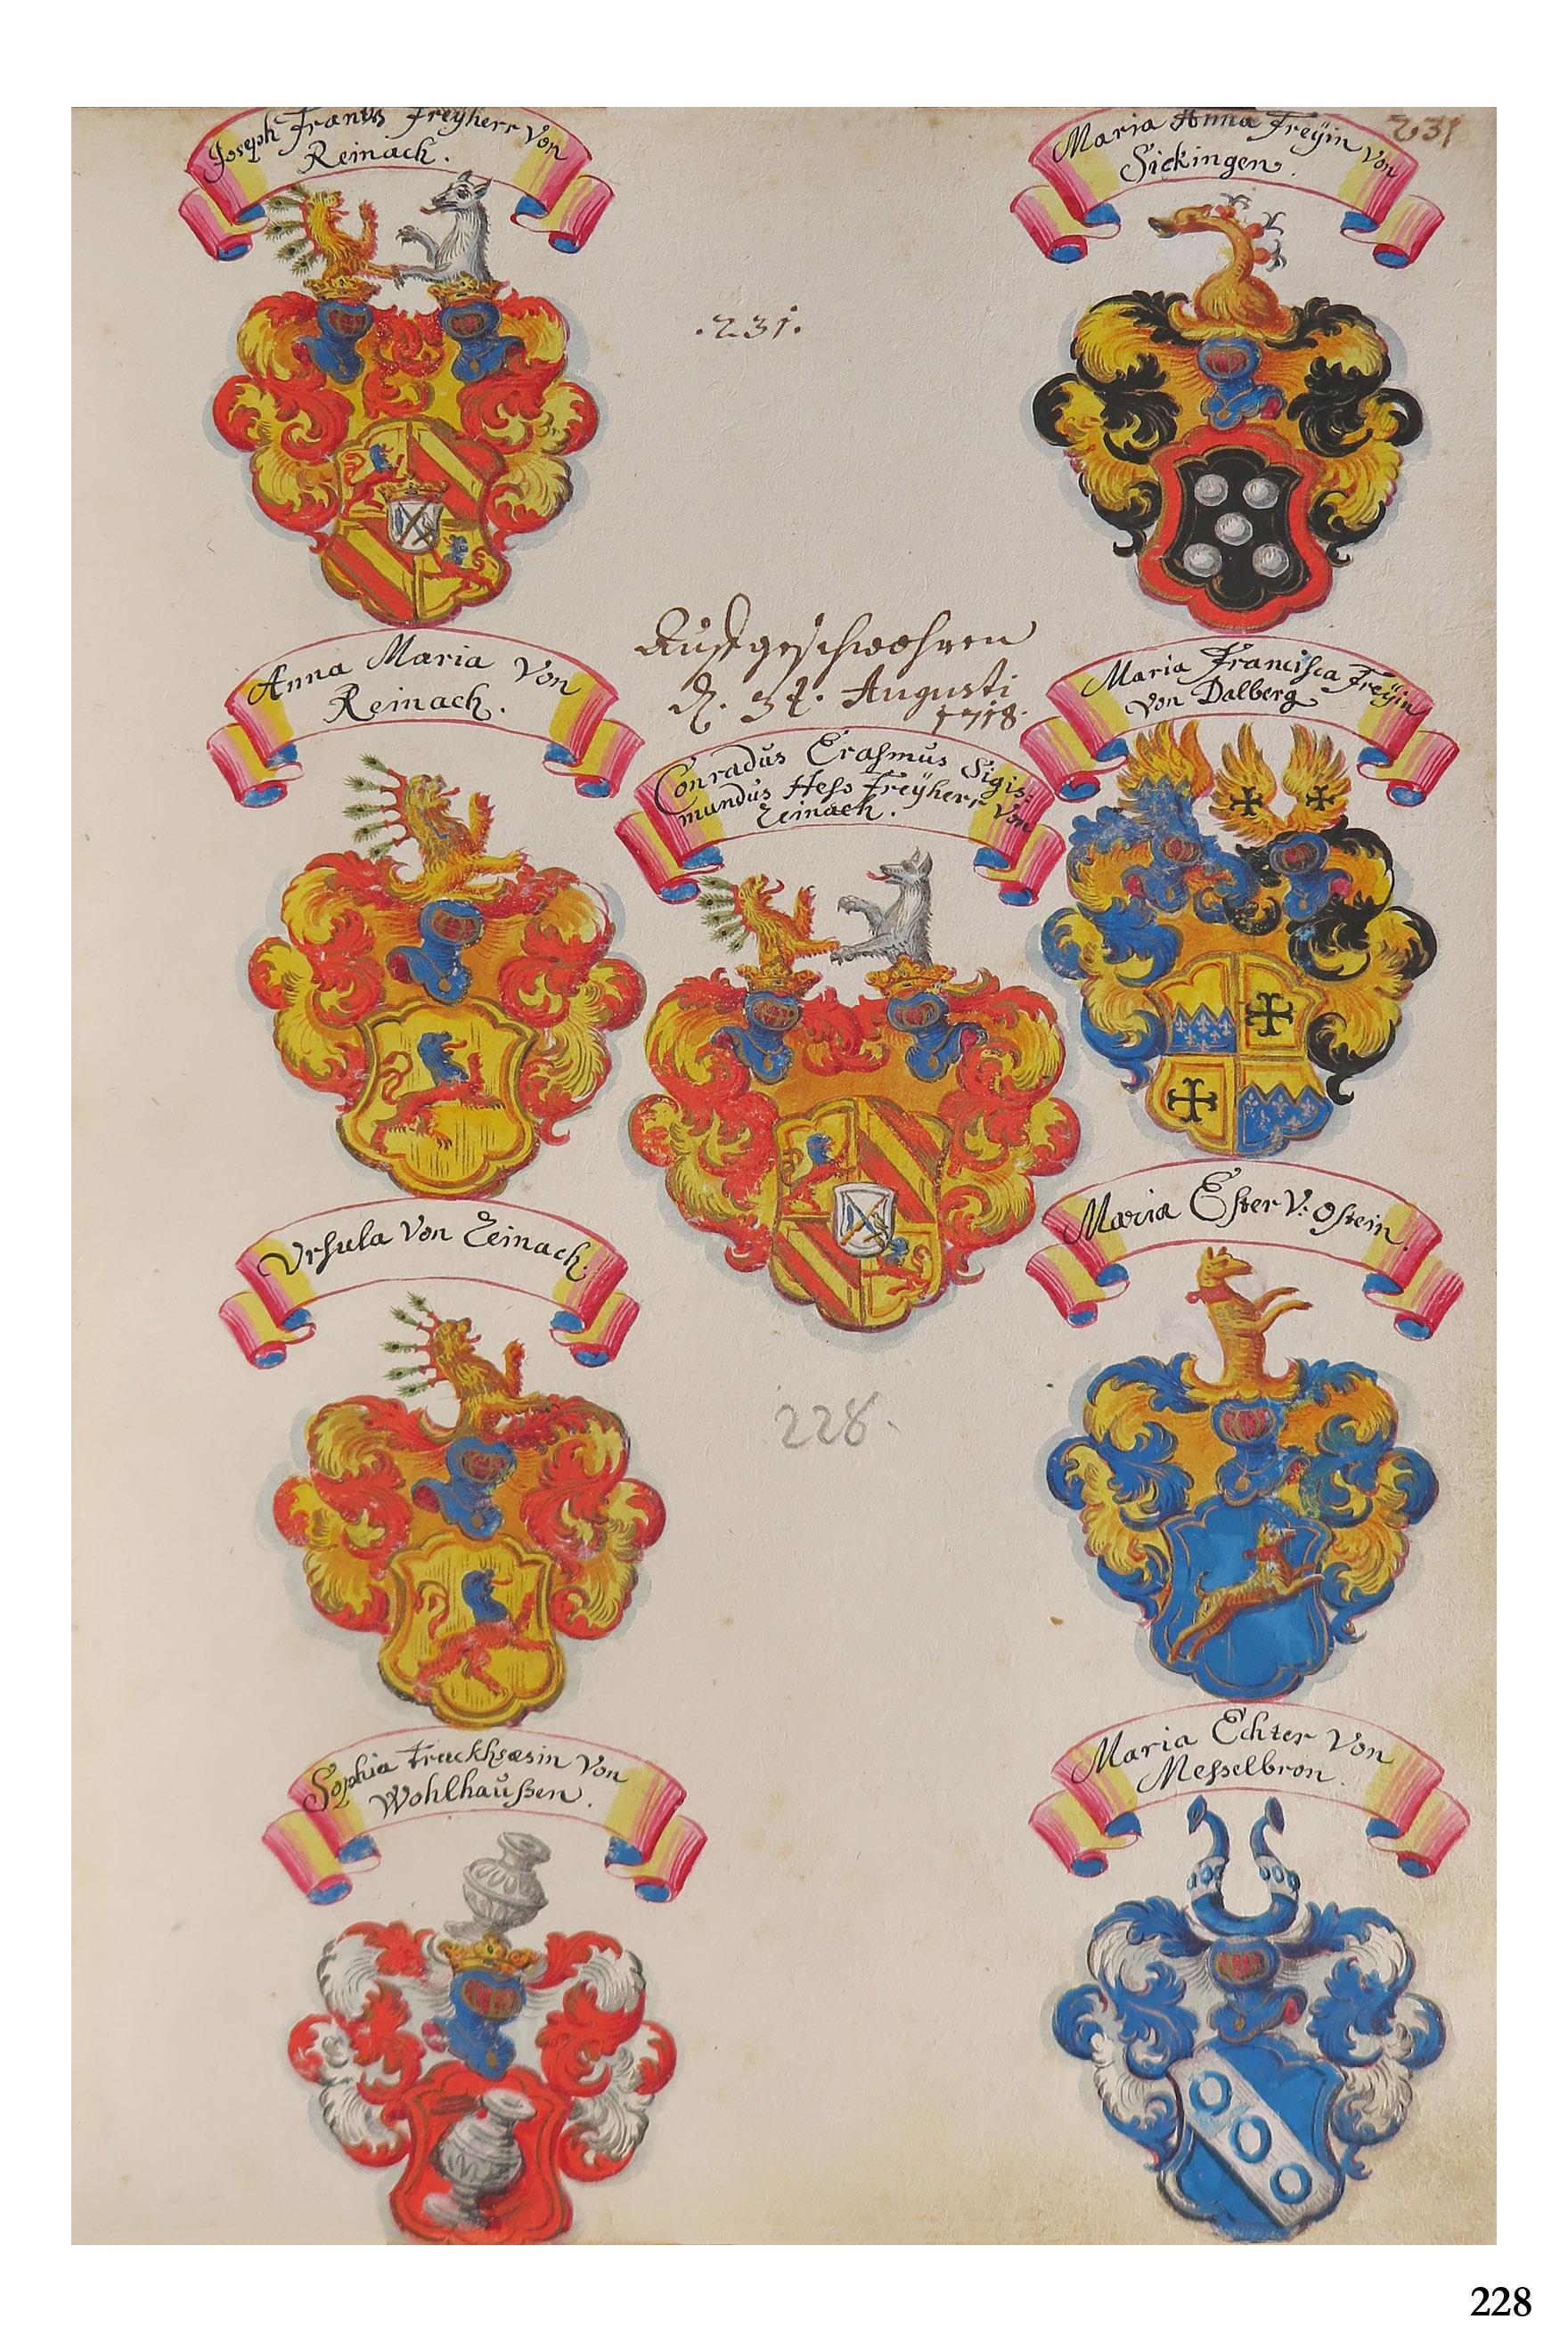 Joseph Frantz Freÿherr Von
Reinach.
Maria Anna Freÿin von
Sickingen.
231
.231.
Auffgeschwohren
d. 31. Augusti
1718.
Anna Maria Von
Reinach.
Maria Francisca Freÿin
von Dalberg
Conradus Erasmus Sigis:
mundus Hess Freÿherr Von
Reinach.
Ursula Von Reinach.
Maria Ester V: Ostein.
228.
Sophia Truckhsæsin Von
Wohlhaußen.
Maria Echter Von
Messelbron.
228